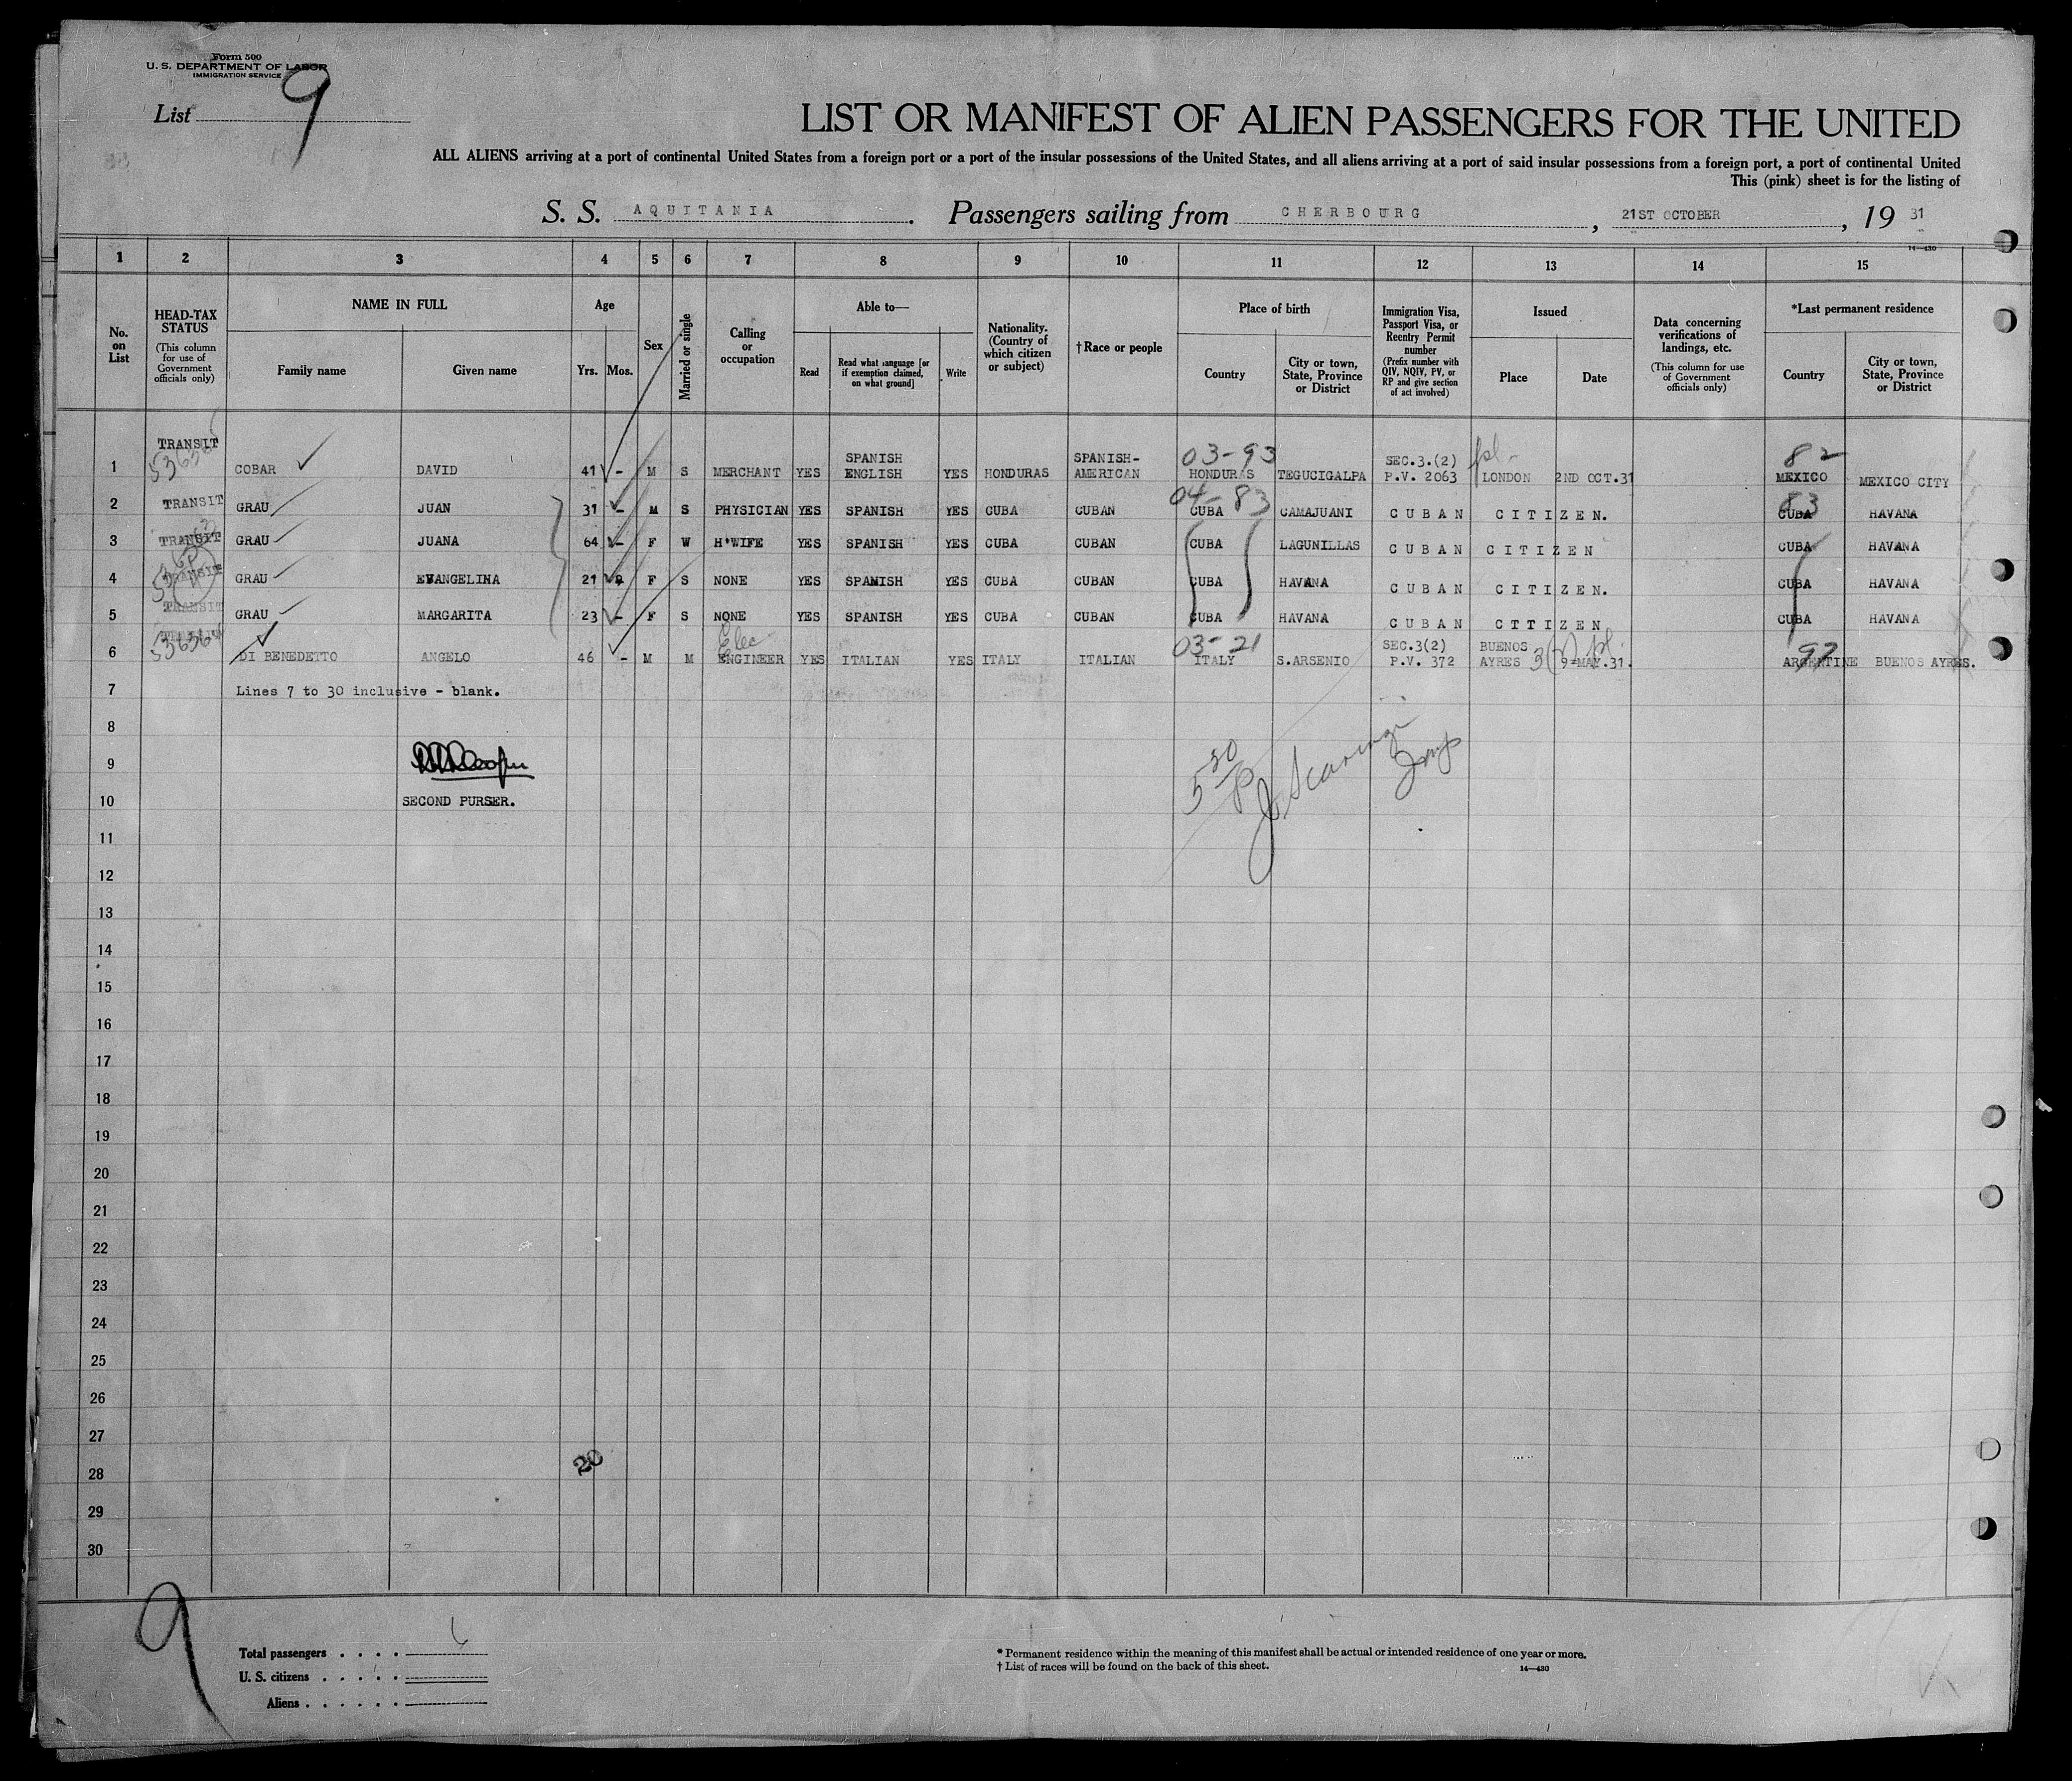 Form 500
U. S. DEPARTMENT OF LABOR
IMMIGRATION SERVICE
List 9
LIST OR MANIFEST OF ALIEN PASSENGERS FOR THE UNITED
ALL ALIENS arriving at a port of continental United States from a foreign port or a port of the insular possessions of the United States, and all aliens arriving at a port of said insular possessions from a foreign port, a port of continental United
This (pink) sheet is for the listing of
S. S. AQUITANIA. Passengers sailing from CHERBOURG, 21ST OCTOBER, 19 31
14—430
1 2 3 4 5 6 7 8 9 10 11 12 13 14 15
No. on List
HEAD-TAX STATUS
(This column for use of Government officials only)
NAME IN FULL
Family name Given name
Age
Yrs. Mos.
Sex
Married or single
Calling or occupation
Able to—
Read
Read what language [or if exemption claimed, on what ground]
Write
Nationality. (Country of which citizen or subject)
† Race or people
Place of birth
Country
City or town, State, Province or District
Immigration Visa, Passport Visa, or Reentry Permit number
(Prefix number with QIV, NQIV, PV, or RP and give section of act involved)
Issued
Place Date
Data concerning verifications of landings, etc.
(This column for use of Government officials only)
*Last permanent residence
Country
City or town, State, Province or District
1 TRANSIT COBAR DAVID 41 - M S MERCHANT YES SPANISH ENGLISH YES HONDURAS SPANISH-AMERICAN 03-93 HONDURAS TEGUCIGALPA SEC.3.(2) P.V. 2063 LONDON 2ND OCT.31 82 MEXICO MEXICO CITY
2 TRANSIT GRAU JUAN 31 - M S PHYSICIAN YES SPANISH YES CUBA CUBAN 04-83 CUBA CAMAJUANI CUBAN CITIZEN. 83 CUBA HAVANA
3 TRANSIT GRAU JUANA 64 - F W H'WIFE YES SPANISH YES CUBA CUBAN CUBA LAGUNILLAS CUBAN CITIZEN CUBA HAVANA
4 TRANSIT GRAU EVANGELINA 21 F S NONE YES SPANISH YES CUBA CUBAN CUBA HAVANA CUBAN CITIZEN. CUBA HAVANA
5 TRANSIT GRAU MARGARITA 23 - F S NONE YES SPANISH YES CUBA CUBAN CUBA HAVANA CUBAN CITIZEN CUBA HAVANA
6 DI BENEDETTO ANGELO 46 - M M Elec ENGINEER YES ITALIAN YES ITALY ITALIAN 03-21 ITALY S.ARSENIO SEC.3(2) P.V. 372 BUENOS AYRES 9=MAY.31. 97 ARGENTINE BUENOS AYRES.
7 Lines 7 to 30 inclusive - blank.
8
9
10 SECOND PURSER.
11
12
13
14
15
16
17
18
19
20
21
22
23
24
25
26
27
28
29
30
20
9
Total passengers . . . . 6
U. S. citizens . . . . .
Aliens . . . . . .
* Permanent residence within the meaning of this manifest shall be actual or intended residence of one year or more.
† List of races will be found on the back of this sheet.
14—430